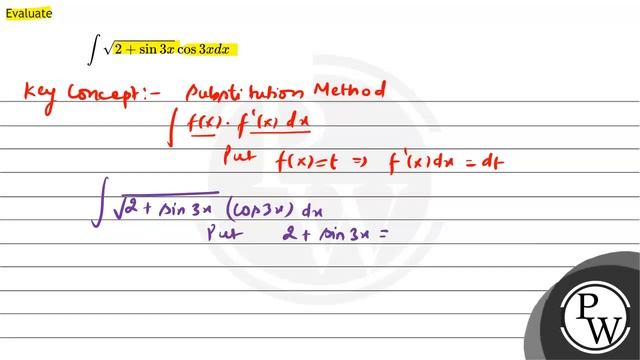 Evaluate
∫ √(2 + sin 3x) cos 3x dx
Key Concept:- Substitution Method
∫ f(x) · f'(x) dx
Put f(x) = t ⇒ f'(x) dx = dt
∫ √(2 + sin 3x) (cos 3x) dx
Put 2 + sin 3x =
P
W